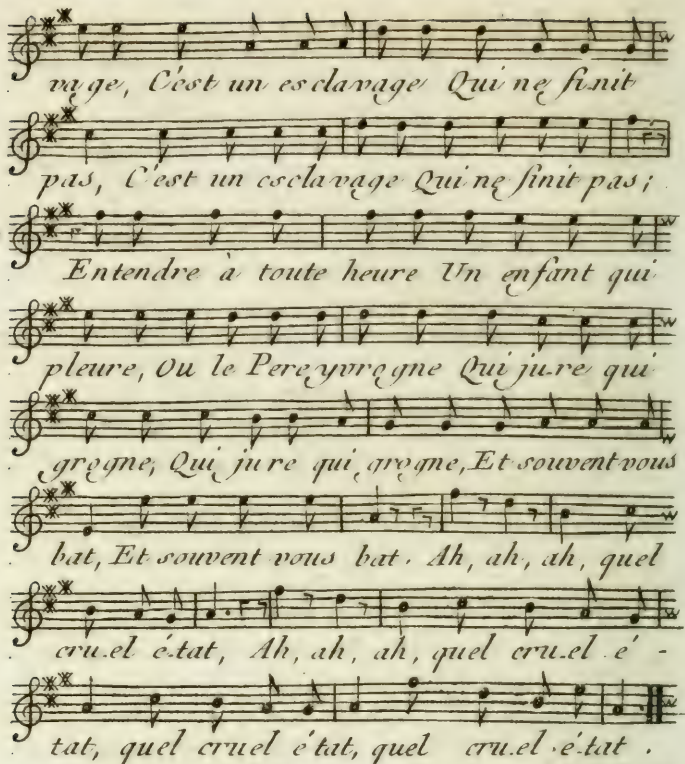 vage, C'est un esclavage Qui ne finit
pas, C'est un esclavage Qui ne finit pas;
Entendre à toute heure Un enfant qui
pleure, Ou le Pere yvrogne Qui ju-re qui
grogne, Qui jure qui grogne, Et souvent vous
bat, Et souvent vous bat. Ah, ah, ah, quel
cru-el é-tat, Ah, ah, ah, quel cru-el é-
tat, quel cruel é tat, quel cru-el é-tat.